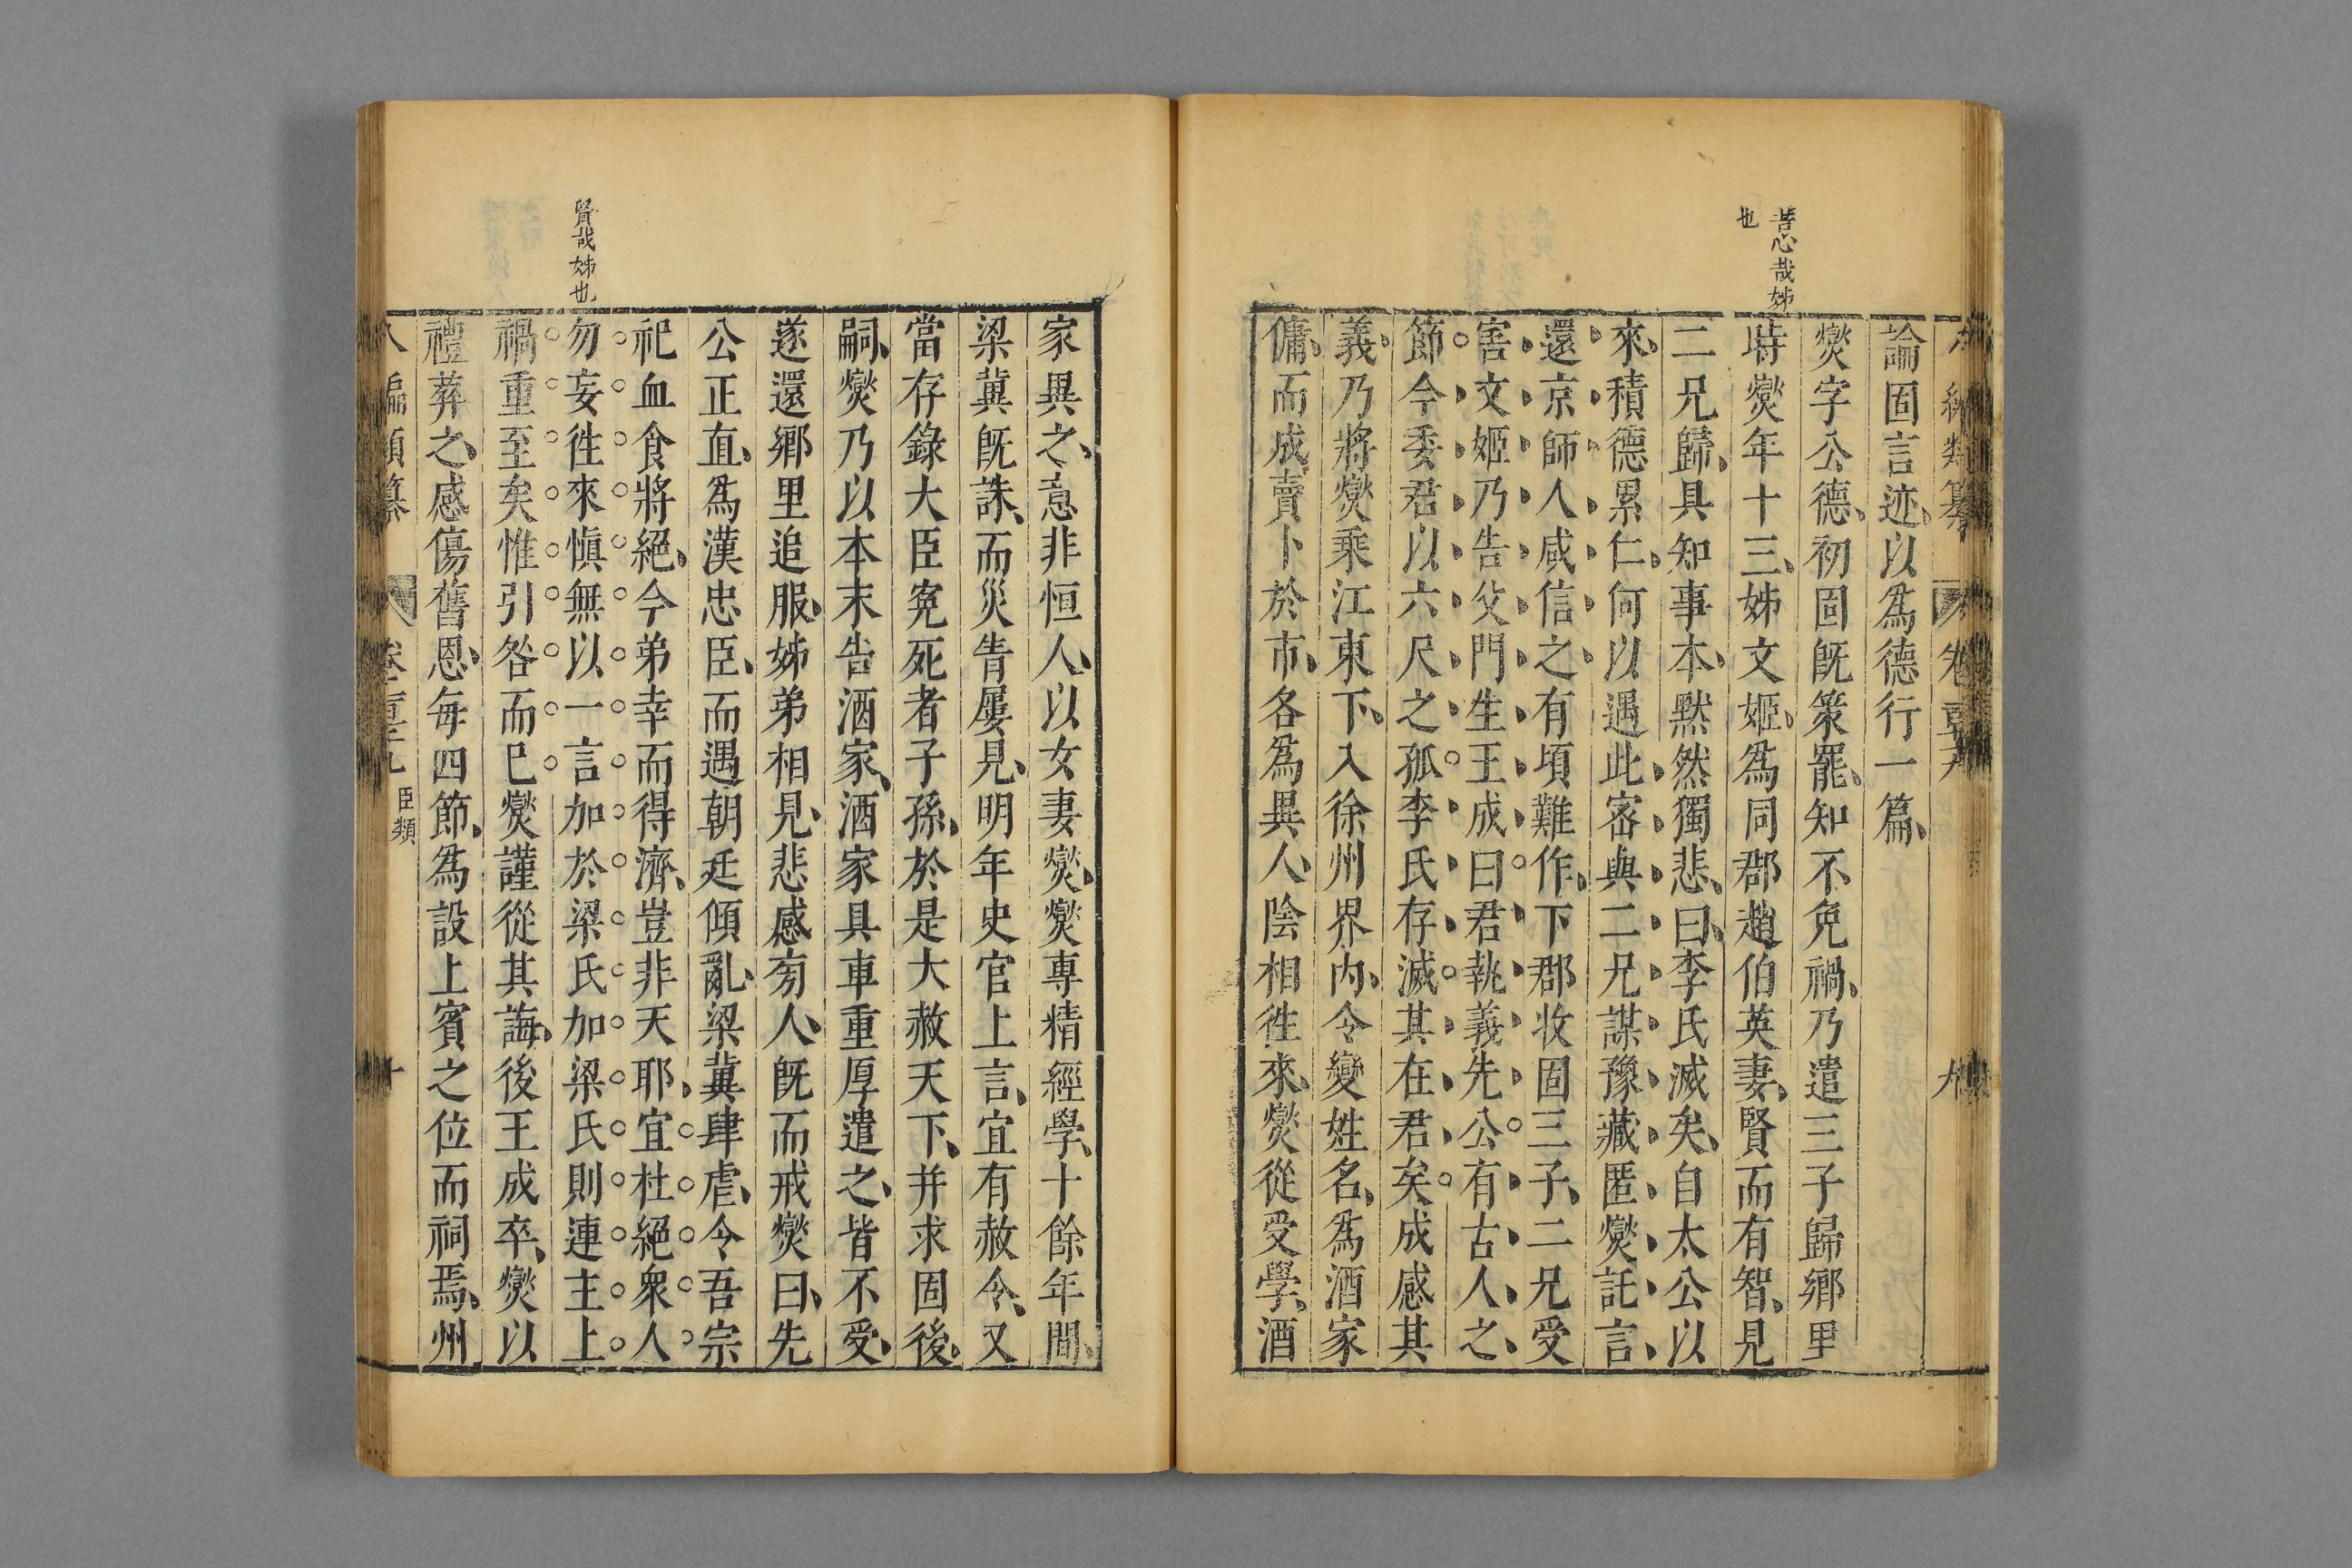 論固言迹以爲德行一篇
燮字公德初固既策罷知不免禍乃遣三子歸鄉里
時燮年十三姊文姬爲同郡趙伯英妻賢而有智見
二兄歸具知事本默然獨悲曰李氏滅矣自太公以
來積德累仁何以遇此密與二兄謀豫藏匿燮託言
還京師人咸信之有頃難作下郡收固三子二兄受
害文姬乃告父門生王成曰君執義先公有古人之
節今委君以六尺之孤李氏存滅其在君矣成感其
義乃將燮乘江東下入徐州界内令變姓名爲酒家
傭而成賣卜於市各爲異人陰相徃來燮從受學酒
苦心哉姊
也
家異之意非恒人以女妻燮燮專精經學十餘年間
梁冀既誅而災眚屢見明年史官上言宜有赦令又
當存錄大臣寃死者子孫於是大赦天下并求固後
嗣燮乃以本末告酒家酒家具車重厚遣之皆不受
遂還鄉里追服姊弟相見悲感旁人既而戒燮曰先
公正直爲漢忠臣而遇朝廷傾亂梁冀肆虐令吾宗
祀血食將絕今弟幸而得濟豈非天耶宜杜絕衆人
勿妄徃來愼無以一言加於梁氏加梁氏則連主上
禍重至矣惟引咎而已燮謹從其誨後王成卒燮以
禮葬之感傷舊恩每四節爲設上賓之位而祠焉州
賢哉姊也
臣類